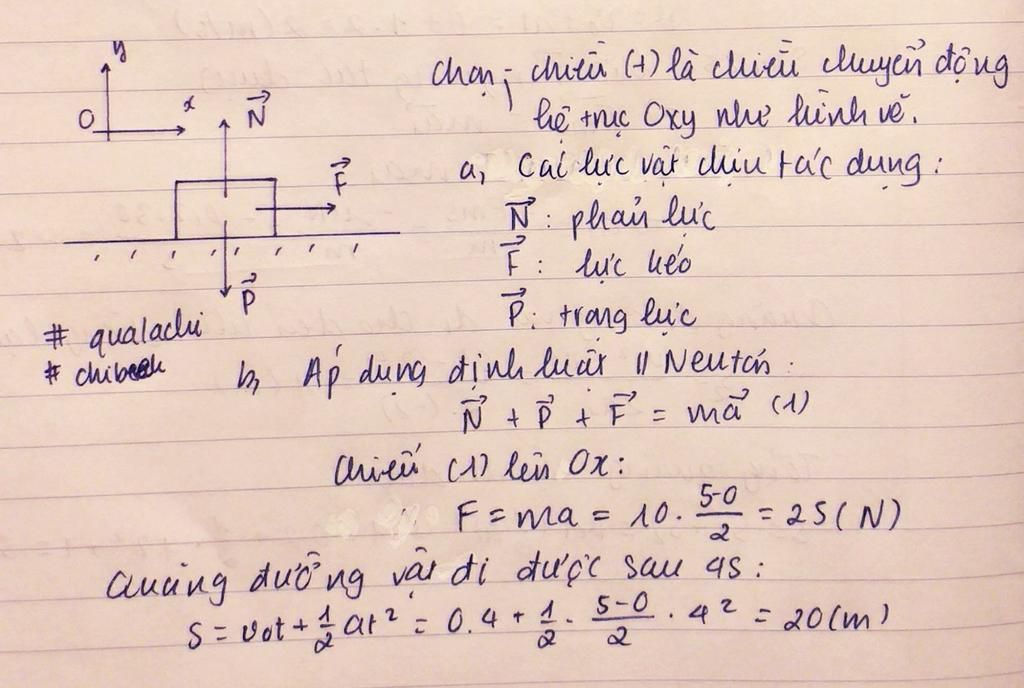 y
O
x
N
F
P
chọn - chiều (+) là chiều chuyển động
hệ trục Oxy như hình vẽ.
a, Các lực vật chịu tác dụng:
N: phản lực
F: lực kéo
P: trọng lực
# qualachi
b, Áp dụng định luật II Neutơn:
N + P + F = ma (1)
Chiếu (1) lên Ox:
F = ma = 10. 5-0/2 = 25(N)
Quãng đường vật đi được sau 4s:
S = v0t + 1/2 at² = 0.4 + 1/2 . 5-0/2 . 4² = 20(m)